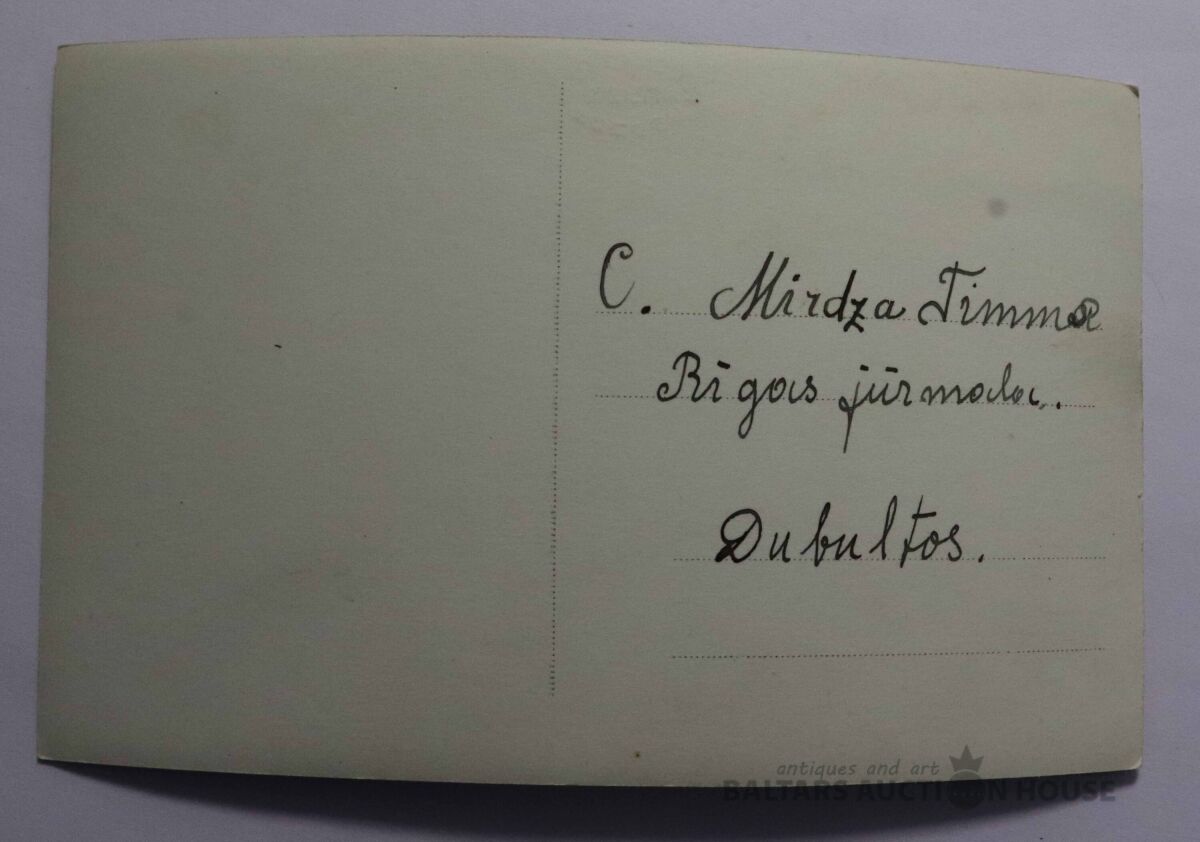 C. Mirdza Timma
Rīgas jūrmala.
Dubultos.
antiques and art
BALTARS AUCTION HOUSE